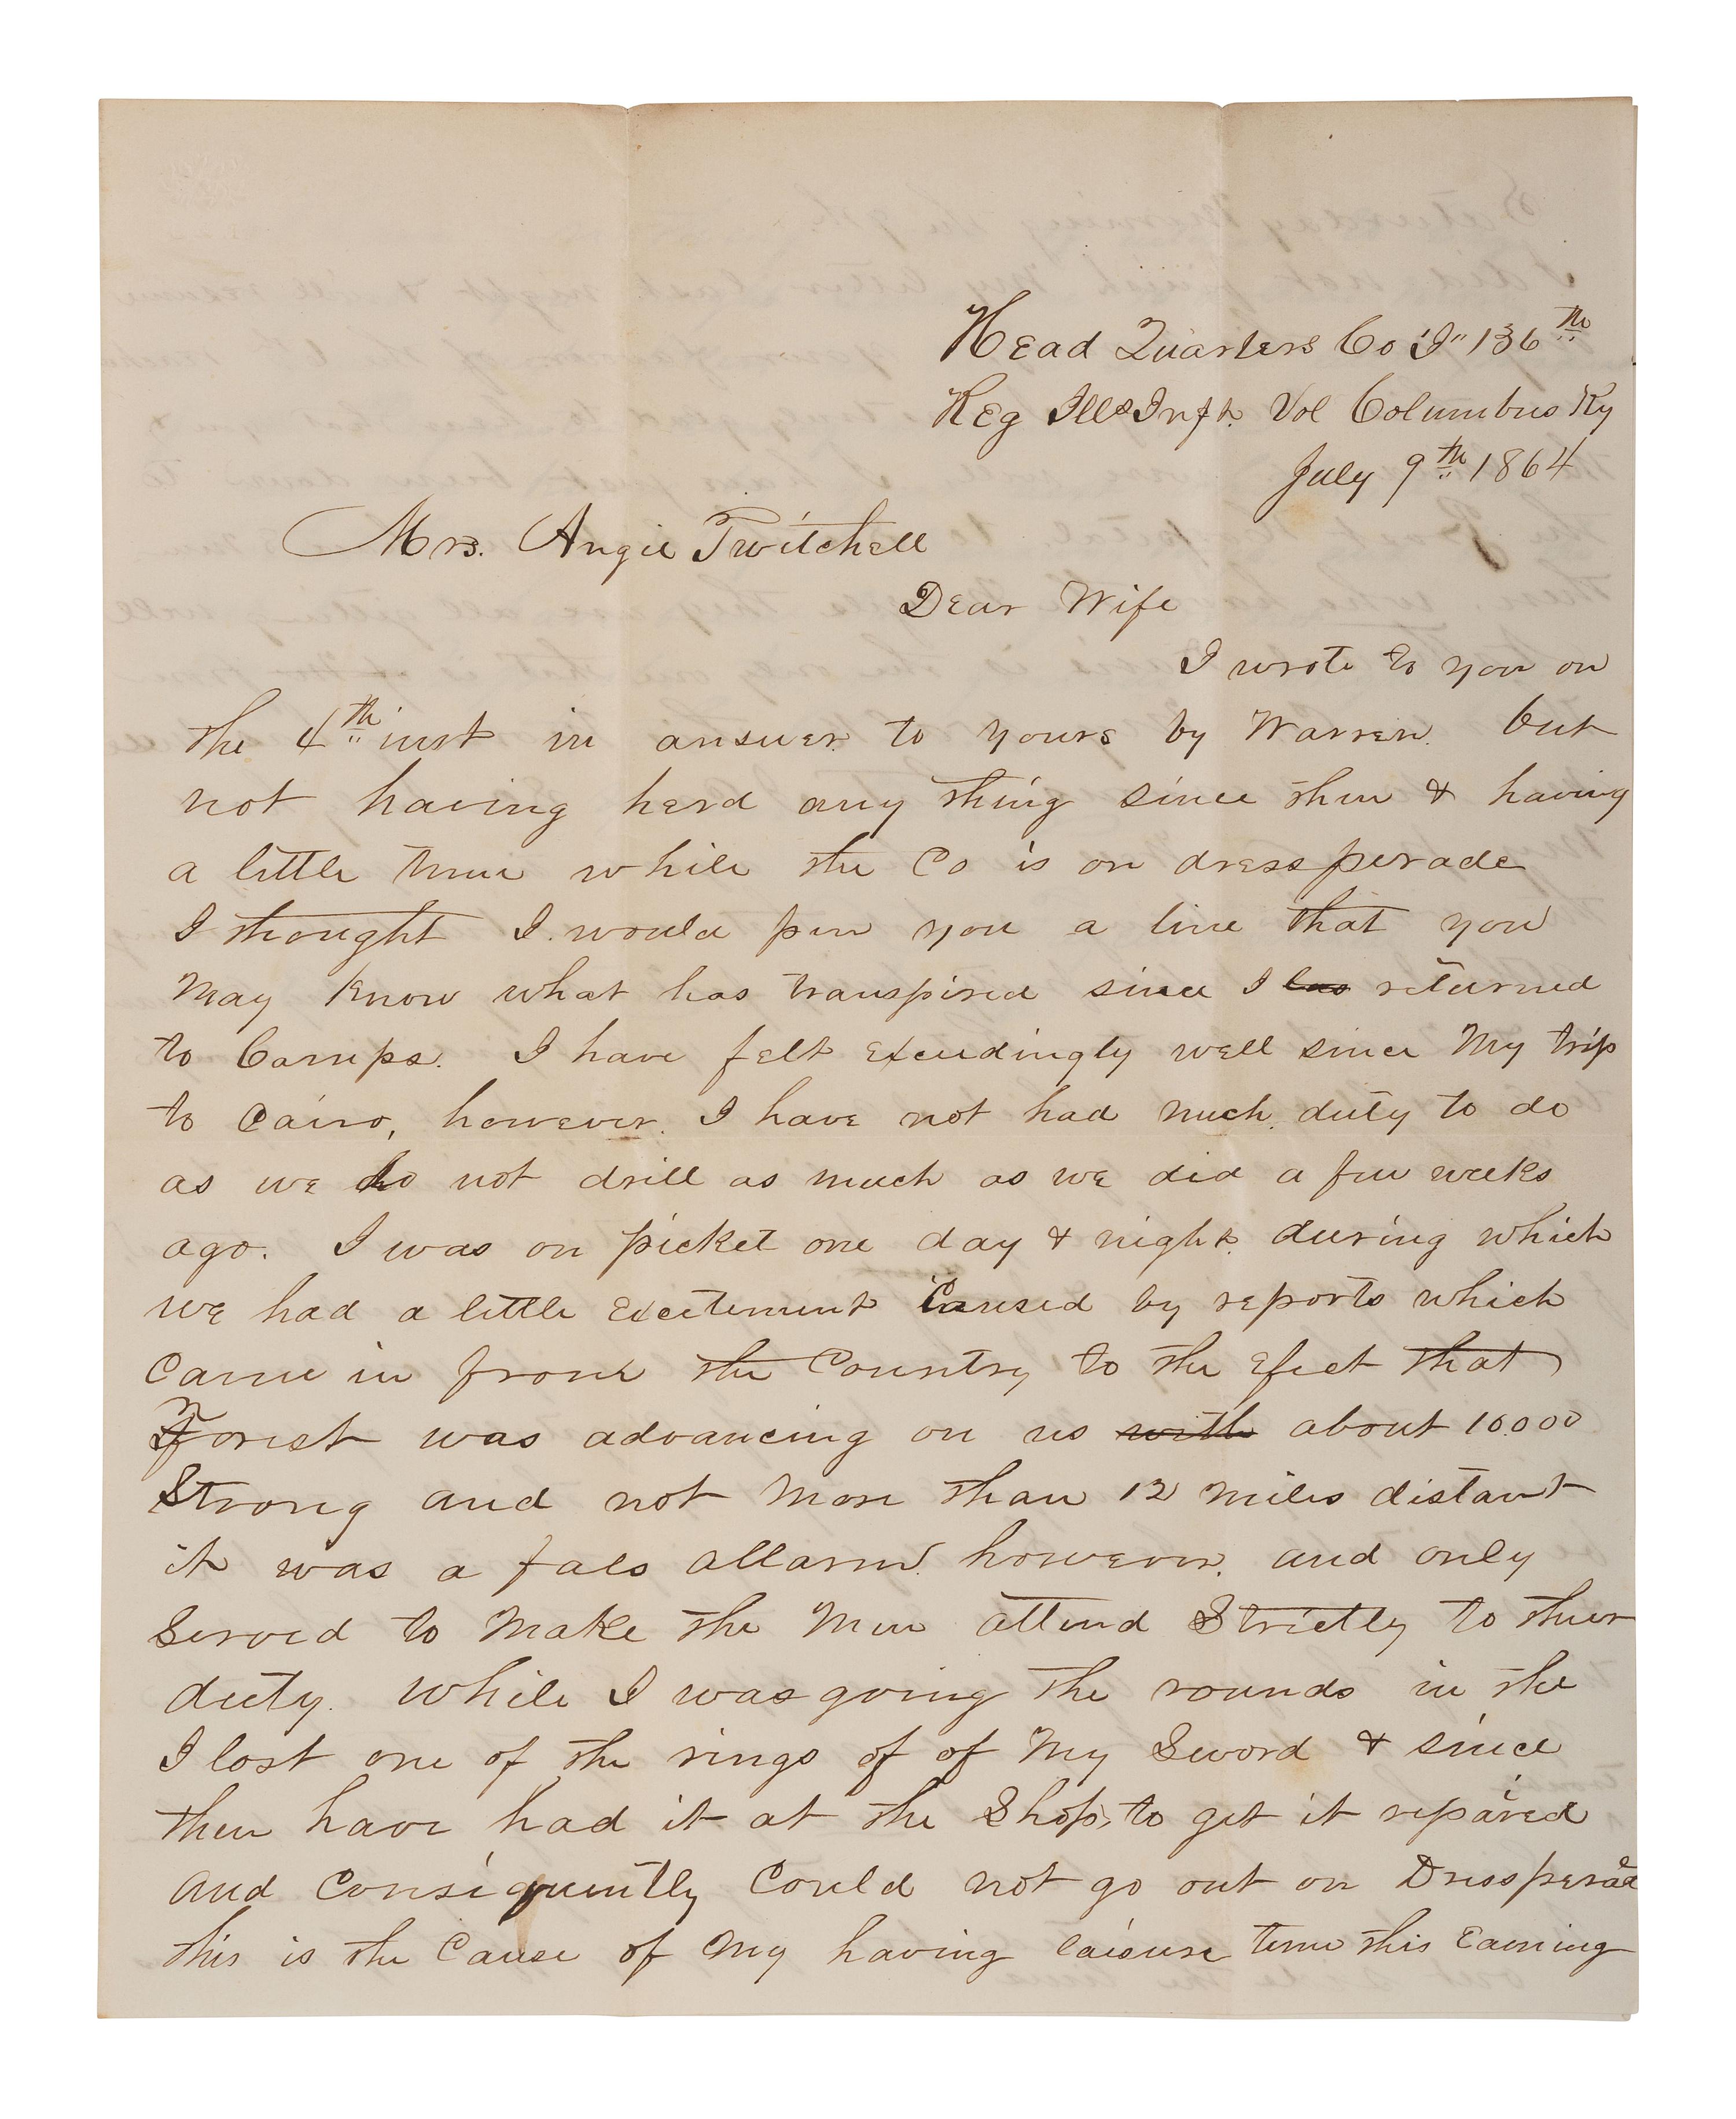 Head Quarters Co "I" 136th
Reg Ills Inft. Vol Columbus Ky
July 9th 1864
Mrs. Angie Twitchell
Dear Wife
I wrote to you on
the 4th inst in answer to yours by Warren. but
not having herd any thing since then & having
a little time while the Co is on dressperade
I thought I would pen you a line that you
May know what has transpired since I has returned
to Camps. I have felt exceudingly well since My trip
to Cairo, however. I have not had much duty to do
as we do not drill as much as we did a few weeks
ago. I was on picket one day & night during which
we had a little excitement Caused by reports which
Came in from the Country to the efect that
Forest was advancing on us with about 10.000
Strong and not More than 12 miles distant
it was a fals allarm. however. and only
Served to Make the Men attend Strictly to their
duty. While I was going the rounds in the
I lost one of the rings of of My Sword & since
then have had it at the Shop, to get it repared
and Consiquently Could not go out on Dressperade
this is the Cause of My having laisure time this Eavning